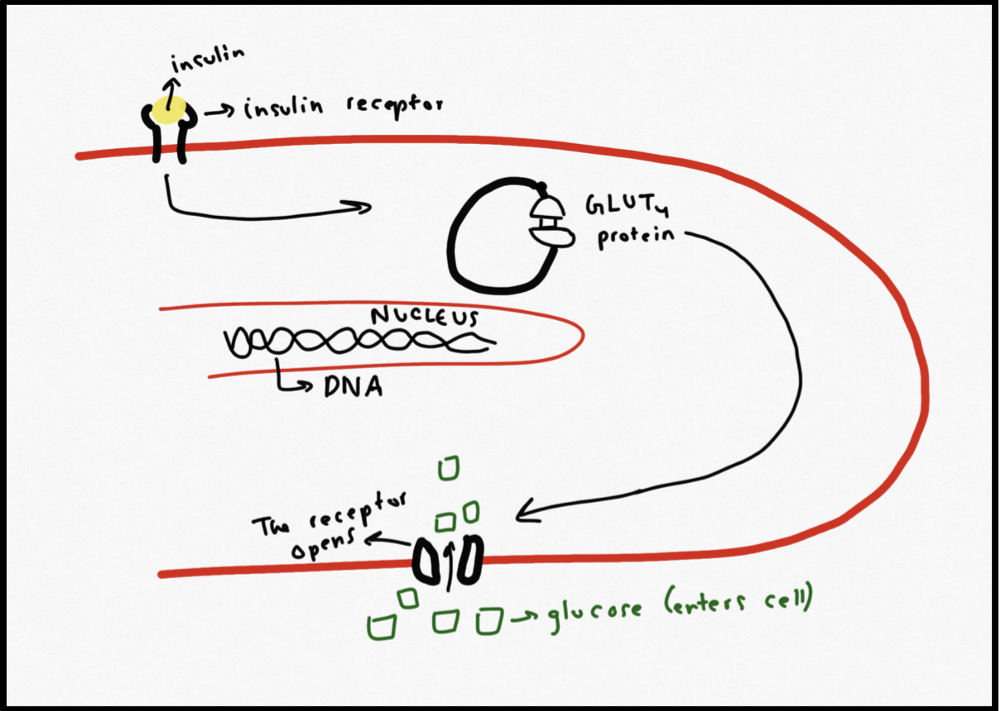 insulin
insulin receptor
GLUT4
protein
NUCLEUS
DNA
The receptor
opens
glucose (enters cell)